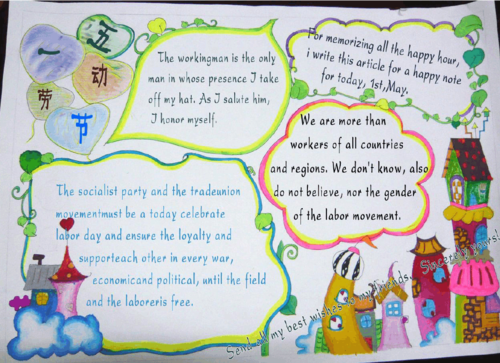 五
一
劳
动
节
The workingman is the only
man in whose presence I take
off my hat. As I salute him,
I honor myself.
For memorizing all the happy hour,
i write this article for a happy note
for today, 1st,May.
We are more than
workers of all countries
and regions. We don't know, also
do not believe, nor the gender
of the labor movement.
The socialist party and the tradeunion
movementmust be a today celebrate
labor day and ensure the loyalty and
supporteach other in every war,
economicand political, until the field
and the laboreris free.
Send all my best wishes to my friends.
Sincerely yours!